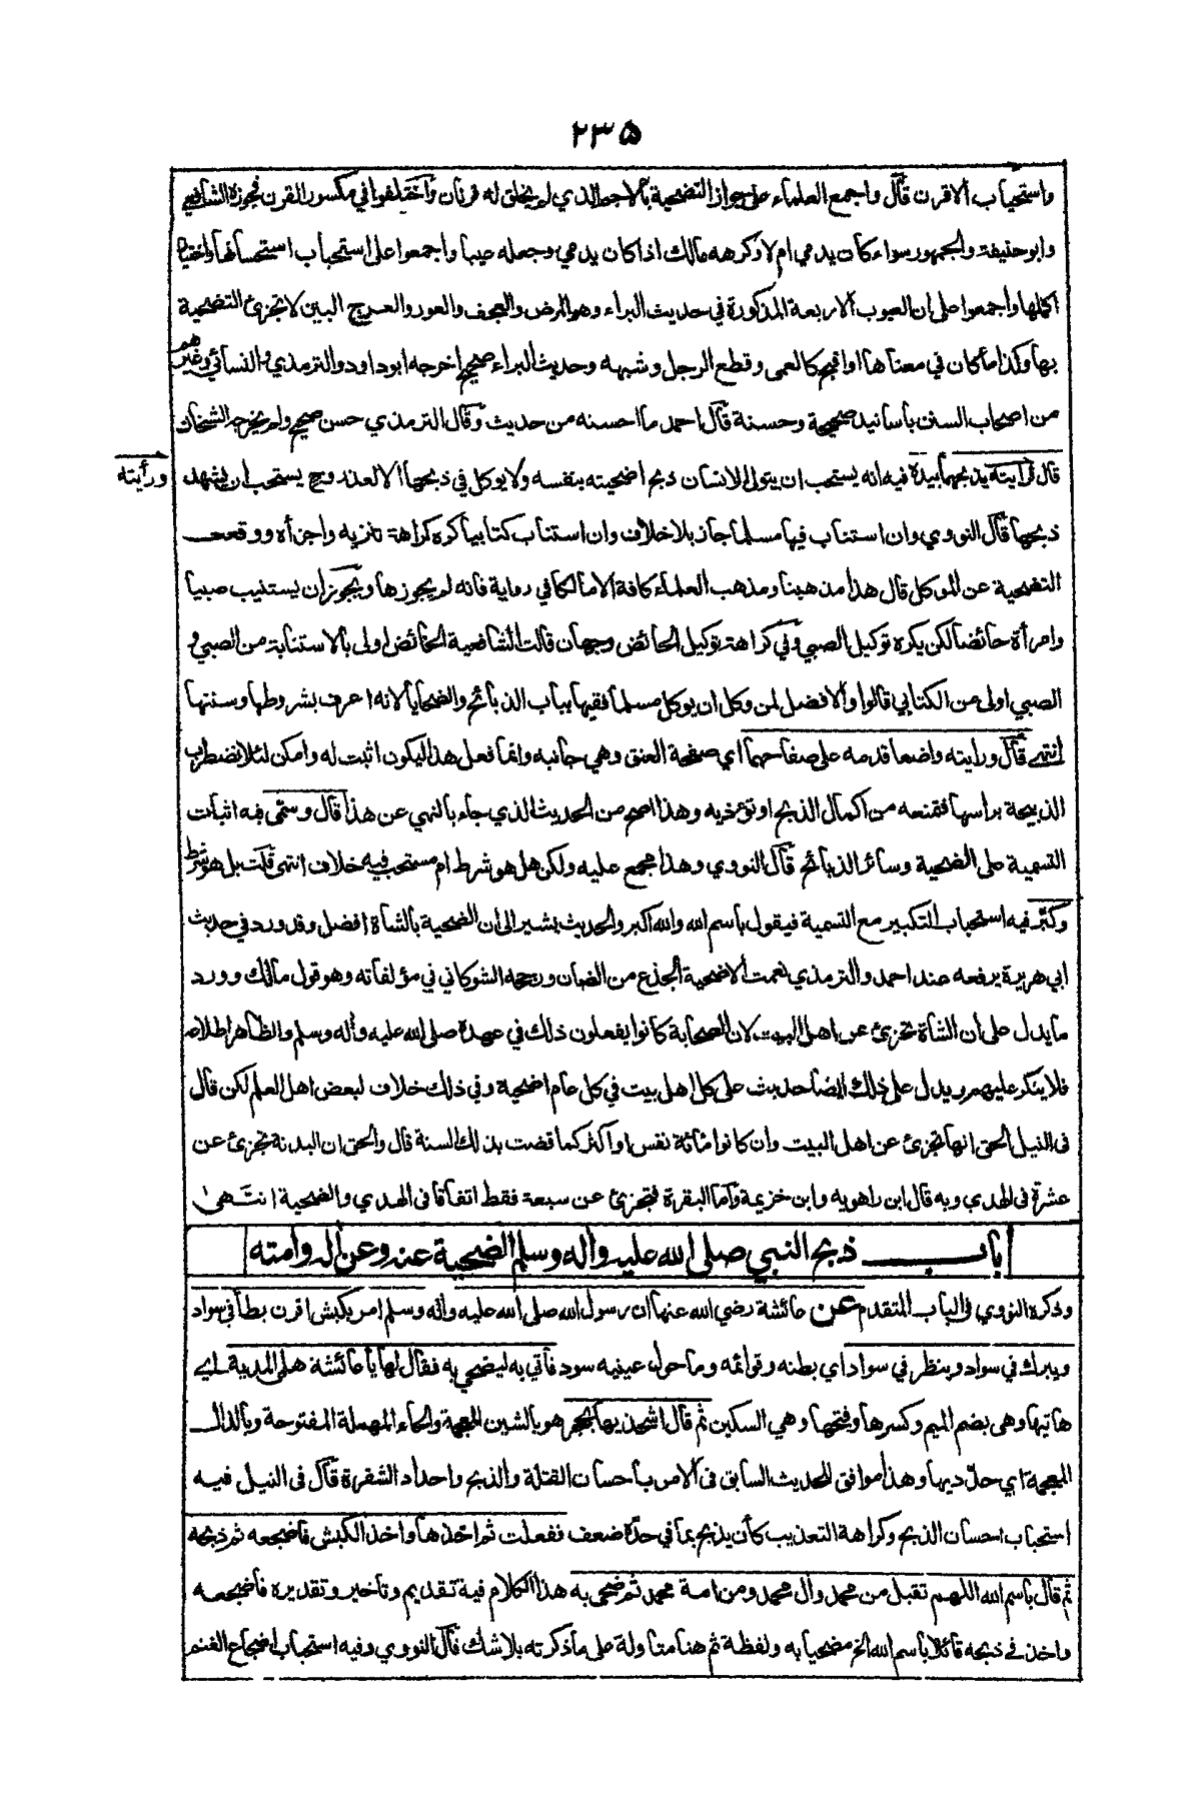 ٢٣٥
واستحباب الاقرن قال واجمع العلماء على جواز التضحية بالاجم الذي لم يخلق له قرنان واختلفوا في مكسور القرن فجوزه الشافعي
وابو حنيفة والجمهور سواء كان يدمي ام لا وكرهه مالك اذا كان يدمي وجعله عيبا واجمعوا على استحباب استحسانها واختيار
اكملها واجمعوا على ان العيوب الاربعة المذكورة في حديث البراء وهو المرض والعجف والعور والعرج البين لا تجزئ التضحية
بها وكذا ما كان في معناها او اقبح كالعمى وقطع الرجل وشبهه وحديث البراء صحيح اخرجه ابو داود والترمذي والنسائي وغيرهم
من اصحاب السنن باسانيد صحيحة وحسنة قال احمد ما احسنه من حديث وقال الترمذي حسن صحيح ولم يخرجه الشيخان
قال فرايته يذبحهما بيده فيه انه يستحب ان يتولى الانسان ذبح اضحيته بنفسه ولا يوكل في ذبحها الا لعذر وح يستحب ان يشهد
ورأيته
ذبحها قال النووي وان استناب فيها مسلما جاز بلا خلاف وان استناب كتابيا كره كراهة تنزيه واجزأه ووقعت
التضحية عن الموكل قال هذا مذهبنا ومذهب العلماء كافة الا مالكا في رواية فانه لم يجوزها ويجوز ان يستنيب صبيا
وامرأة حائضا لكن يكره توكيل الصبي وفي كراهة توكيل الحائض وجهان قالت الشافعية الحائض اولى بالاستنابة من الصبي و
الصبي اولى من الكتابي قالوا والافضل لمن وكل ان يوكل مسلما فقيها بباب الذبائح والضحايا لانه اعرف بشروطها وسنتها
انتهى قال ورايته واضعا قدمه على صفاحهما اي صفحة العنق وهي جانبه وانما فعل هذا ليكون اثبت له وامكن لئلا تضطرب
الذبيحة براسها فتمنعه من اكمال الذبح او تؤذيه وهذا اصح من الحديث الذي جاء بالنهي عن هذا قال وسمى فيه اثبات
التسمية على الضحية وسائر الذبائح قال النووي وهذا مجمع عليه ولكن هل هو شرط ام مستحب فيه خلاف انتهى قلت بل هو شرط
وكبر فيه استحباب التكبير مع التسمية فيقول باسم الله والله اكبر والحديث يشير الى ان الضحية بالشاة افضل وقد ورد في حديث
ابي هريرة يرفعه عند احمد والترمذي نعمت الاضحية الجذع من الضان ورجحه الشوكاني في مؤلفاته وهو قول مالك وورد
ما يدل على ان الشاة تجزئ عن اهل البيت لان الصحابة كانوا يفعلون ذلك في عهده صلى الله عليه وأله وسلم والظاهر اطلاعه
فلا ينكر عليهم ويدل على ذلك ايضا حديث على كل اهل بيت في كل عام اضحية وفي ذلك خلاف لبعض اهل العلم لكن قال
فى النيل الحق انها تجزئ عن اهل البيت وان كانوا مائة نفس او اكثر كما قضت بذلك السنة قال والحق ان البدنة تجزئ عن
عشرة فى الهدي وبه قال ابن راهويه وابن خزيمة واما البقرة فتجزئ عن سبعة فقط اتفاقا في الهدي والضحية انتهى
باب ذبح النبي صلى الله عليه وأله وسلم الضحية عنه وعن أله وامته
وذكره النووي فى الباب المتقدم عن عائشة رضي الله عنها ان رسول الله صلى الله عليه وأله وسلم امر بكبش اقرن يطأ في سواد
ويبرك في سواد وينظر في سواد اي بطنه وقوائمه وما حول عينيه سود فأتي به ليضحي به فقال لها يا عائشة هلمى المدية اي
هاتيها وهى بضم الميم وكسرها وفتحها وهي السكين ثم قال اشحذيها بحجر هو بالشين المعجمة والحاء المهملة المفتوحة وبالذال
المعجمة اي حدديها وهذا موافق للحديث السابق فى الامر باحسان القتلة والذبح واحداد الشفرة قال فى النيل فيه
استحباب احسان الذبح وكراهة التعذيب كأن يذبح بما في حده ضعف ففعلت ثم اخذها واخذ الكبش فاضجعه ثم ذبحه
ثم قال باسم الله اللهم تقبل من محمد وأل محمد ومن امة محمد ثم ضحى به هذا الكلام فيه تقديم وتاخير وتقديره فاضجعه
واخذ فے ذبحه قائلا باسم الله الخ مضحيا به ولفظة ثم هنا متاولة على ما ذكرته بلا شك قال النووي وفيه استحباب اضجاع الغنم